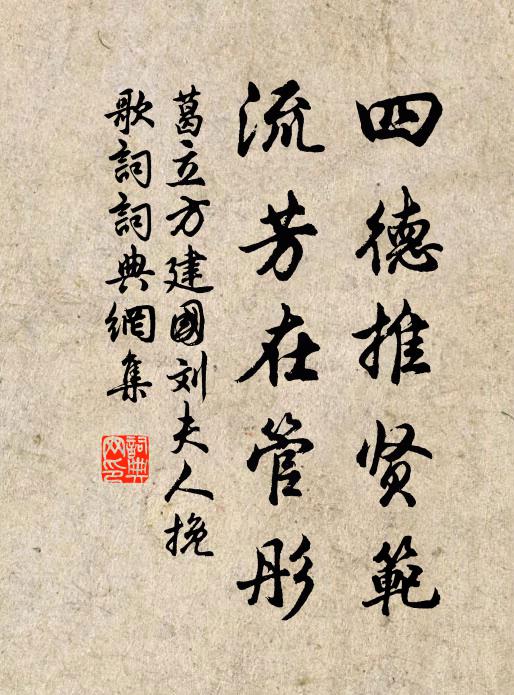 四德推贤範
流芳在管彤
葛立方建國刘夫人挽
歌詞詞典網集
詞典网印